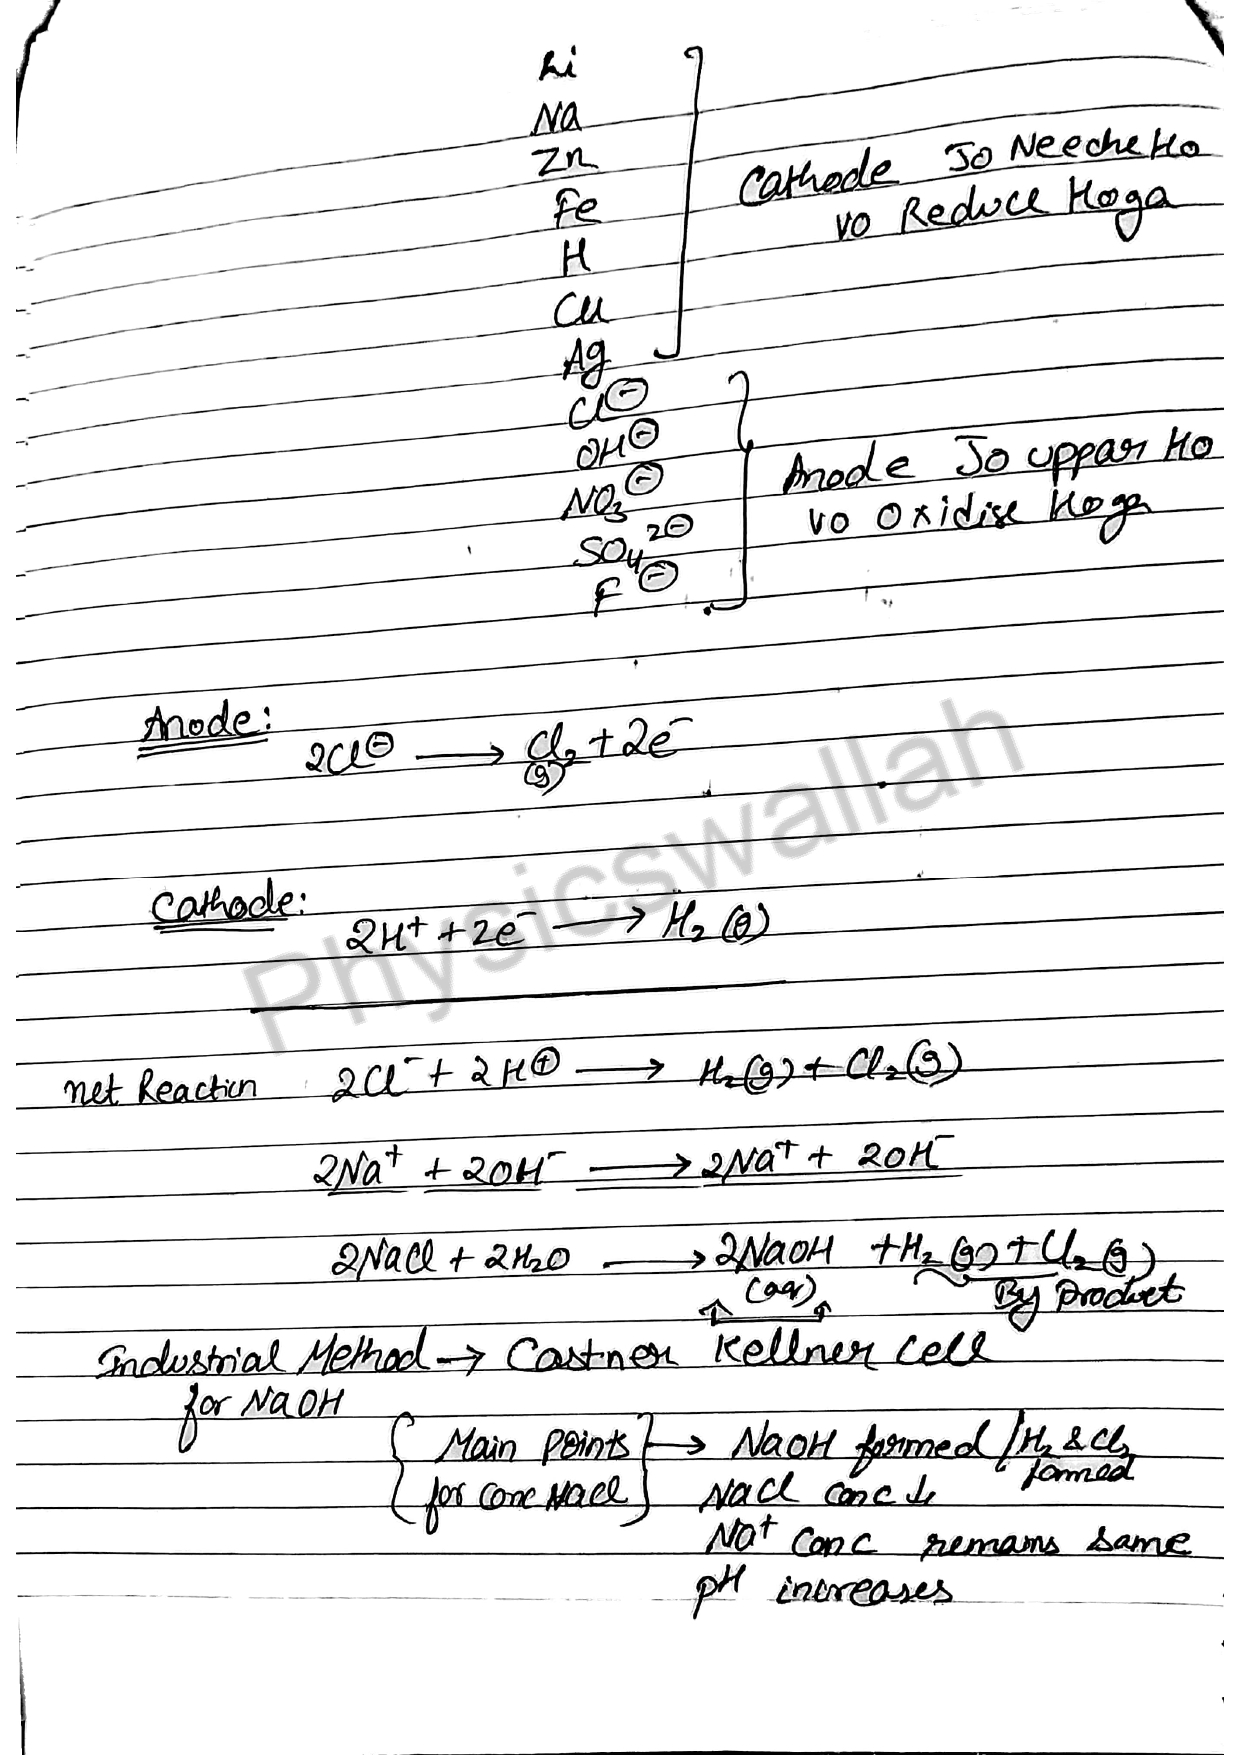 Li
Na
Zn
Fe
H
Cu
Ag
Cathode Jo Neeche Ho
vo Reduce Hoga
Cl⊖
OH⊖
NO₃⊖
SO₄²⊖
F⊖
Anode Jo uppar Ho
vo Oxidise Hoga
Anode:
2Cl⊖ ⟶ Cl₂ + 2e⁻
(g)
Cathode:
2H⁺ + 2e⁻ ⟶ H₂ (g)
Physicswallah
net Reaction 2Cl⁻ + 2H⊕ ⟶ H₂(g) + Cl₂(g)
2Na⁺ + 2OH⁻ ⟶ 2Na⁺ + 2OH⁻
2NaCl + 2H₂O ⟶ 2NaOH + H₂(g) + Cl₂(g)
(aq) By Product
Industrial Method → Castner Kellner cell
for NaOH
{ Main points } → NaOH formed / H₂ & Cl₂
formed
{ for conc NaCl } NaCl conc ↓
Na⁺ conc remans same
pH increases